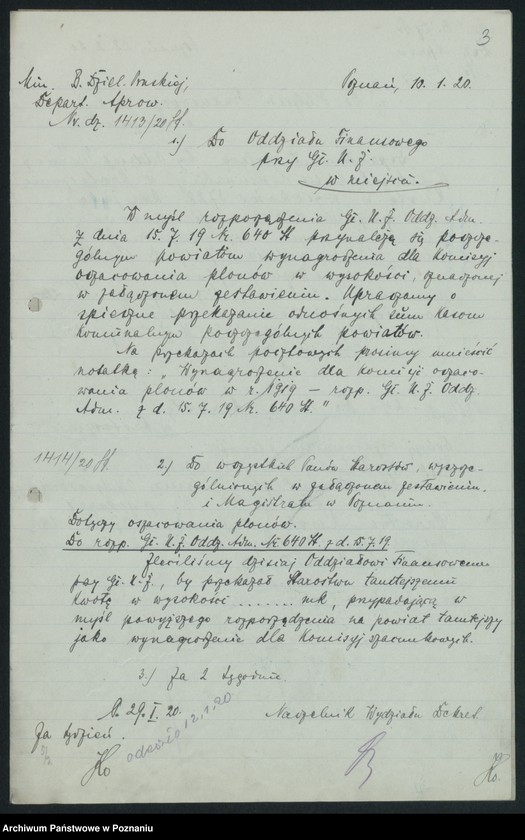 3
Min. B. Dziel. Pruskiej,
Depart. Aprow.
Poznań, 10. 1. 20.
Nr. dz. 1413/20
1.) Do Oddziału Finansowego
przy Gł. U. Z.
w miejscu.
W myśl rozporządzenia Gł. U. Z. Oddz. Adm.
z dnia 15. 7. 19 Nr. 640 II przynależą się poszcze-
gólnym powiatom wynagrodzenia dla komisyj
oszacowania plonów w wysokości, oznaczonej
w załączonem zestawieniu. Upraszamy o
spieszne przekazanie odnośnych sum kasom
komunalnym poszczególnych powiatów.
Na przekazach pocztowych prosimy umieścić
notatkę: "Wynagrodzenie dla komisji oszaco-
wania plonów w r. 1919 – rozp. Gł. U. Z. Oddz.
Adm. z d. 15. 7. 19 Nr. 640 II."
1414/20
2.) Do wszystkich Panów Starostów, wyszcze-
gólnionych w załączonem zestawieniu
i Magistratu w Poznaniu.
Dotyczy oszacowania plonów.
Do rozp. Gł. U. Z. Oddz. Adm. Nr. 640 II z d. 15. 7. 19
Zleciliśmy dzisiaj Oddziałowi Finansowemu
przy Gł. U. Z., by przekazał Starostwu tamtejszemu
kwotę w wysokości ....... mk, przypadającą w
myśl powyższego rozporządzenia na powiat tamtejszy
jako wynagrodzenie dla komisyj szacunkowych.
3.) Za 2 tygodnie.
29. I. 20.
Naczelnik Wydziału
Za tydzień.
12. 1. 20
Ko
Ko.
Archiwum Państwowe w Poznaniu